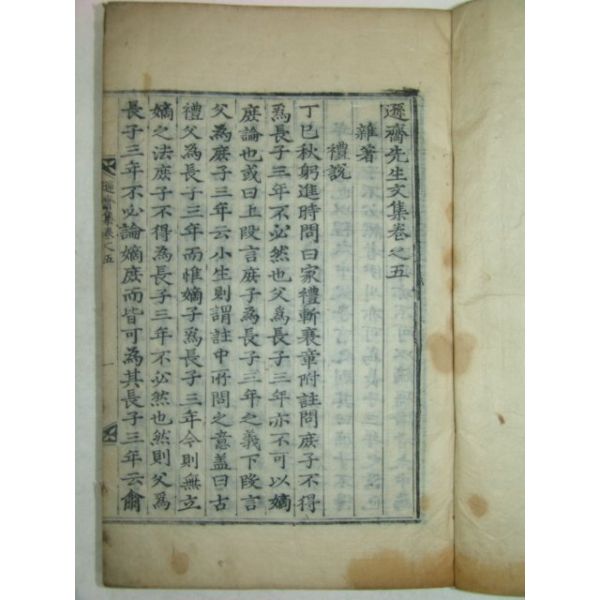 遯齋先生文集卷之五
雜著
禮說
丁巳秋躬進時問曰家禮斬衰章附註問庶子不得
爲長子三年不必然也父爲長子三年亦不可以嫡
庶論也或曰上段言庶子爲長子三年之義下段言
父爲庶子三年云小生則謂註中所問之意盖曰古
禮父爲長子三年而惟嫡子爲長子三年今則無立
嫡之法庶子不得為長子三年不必然也然則父爲
長子三年不必論嫡庶而皆可為其長子三年云爾
遯齋集卷之五
一